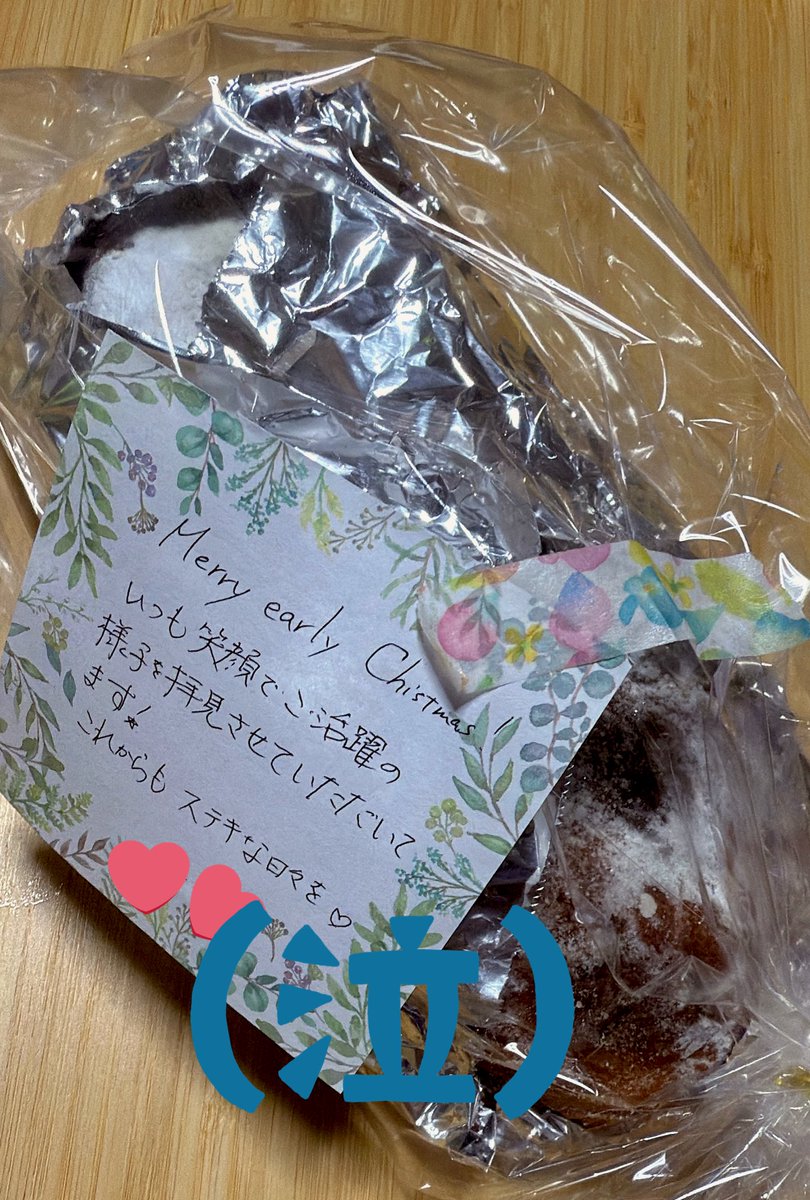 Merry early Chistmas!
いつも笑顔でご活躍の
様子を拝見させていただいて
ます!
これからも ステキな日々を♡
(泣)